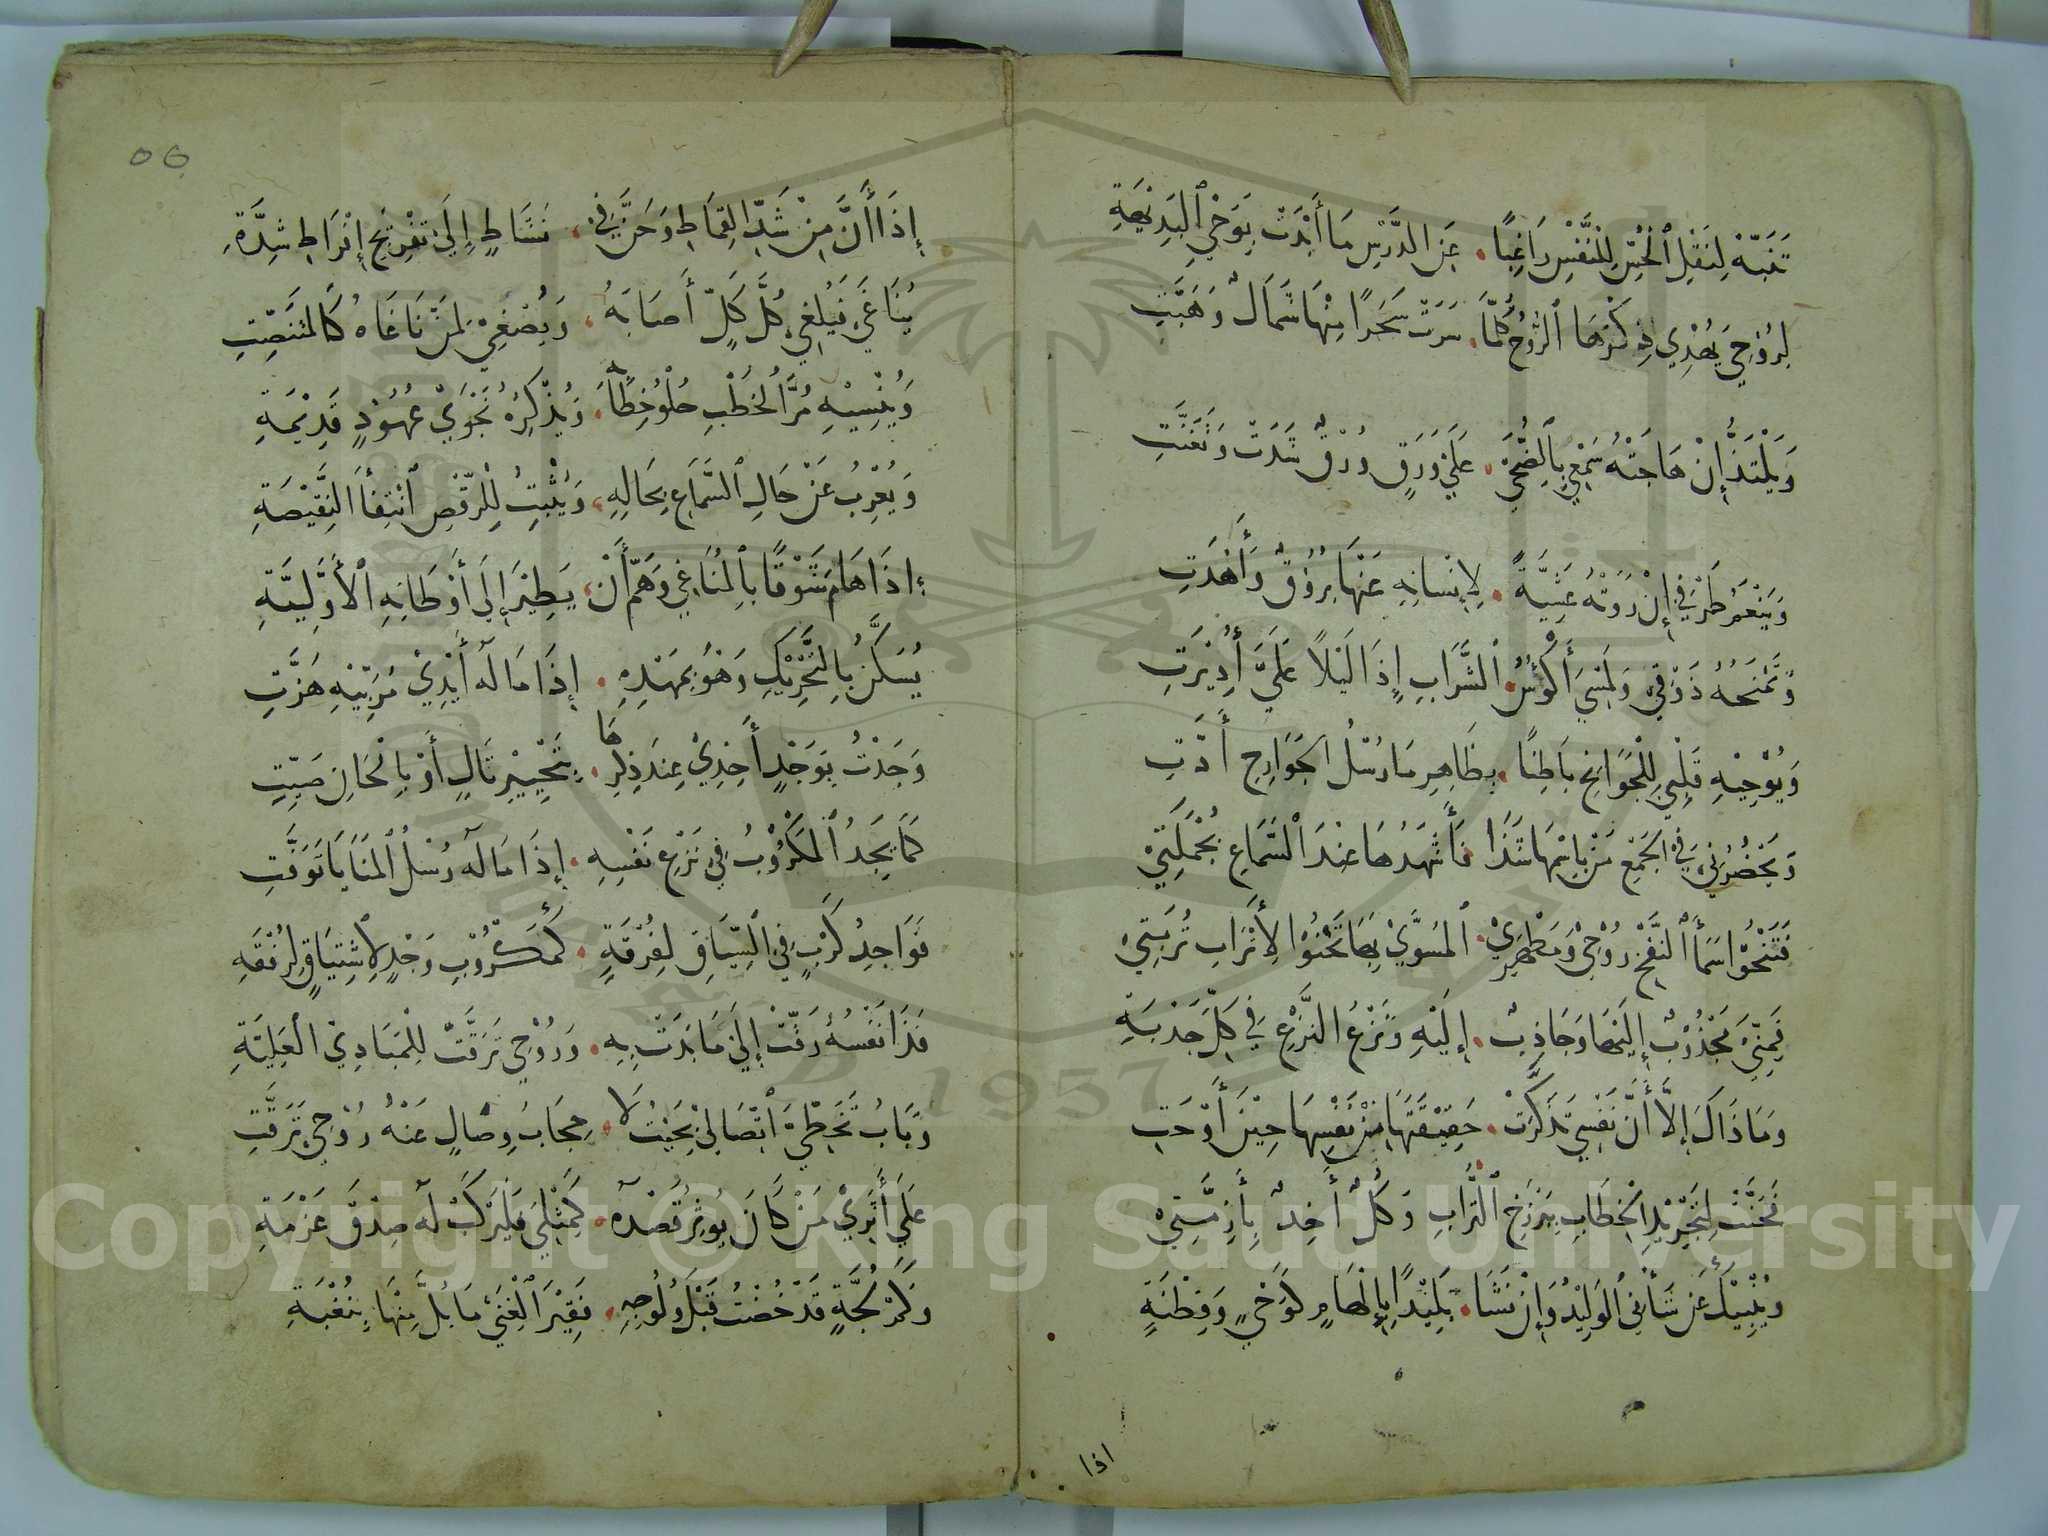 تَنَبَّهْ لِنَقْلِ ٱلْحِسِّ لِلنَّفْسِ رَاغِبًا ۰ عَنِ الدَّرْسِ مَا أَبْدَتْ بِوَحْيِ ٱلْبَدِيْهَةِ
لِرُوْحِيْ يُهْدِي ذِكْرُهَا ٱلرَّوْحَ كُلَّمَا ۰ سَرَتْ سَحَرًا مِنْهَا شَمَالٌ وَهَبَّتِ
وَيَلْتَذُّ إِنْ هَاجَتْهُ سَمْعِيْ بِٱلضُّحَىْ ۰ عَلَىْ وَرَقٍ وُرْقٌ شَدَتْ وَتَغَنَّتِ
وَيَنْعَمُ طَرْفِيْ إِنْ رَوَتْهُ عَشِيَّةً ۰ لِإِنْسَانِهِ عَنْهَا بُرُوْقٌ وَأَهْدَتِ
وَتَمْنَحُهُ ذَوْقِيْ وَلَمْسِيَ أَكْؤُسُ ٱلشَّرَابِ إِذَا لَيْلًا عَلَيَّ أُدِيْرَتِ
وَيُوْحِيْهِ قَلْبِيْ لِلْجَوَانِحِ بَاطِنًا ۰ بِظَاهِرِ مَا رُسْلُ الجَوَارِحِ أَدَّتِ
وَيُحْضِرُنِيْ فِيْ الجَمْعِ مَنْ بِاسْمِهَا شَدَا ۰ فَأَشْهَدُهَا عِنْدَ ٱلسَّمَاعِ بِجُمْلَتِيْ
فَتَنْحُوْ اسَمَاْ ٱلنَّفْخِ رُوْحِيْ وَمَظْهَرِيْ ۰ ٱلمُسَوَّىْ بِهَا تَحْنُوْ لِأَتْرَابِ تُرْبَتِيْ
فَمِنِّيَ مَجْذُوْبٌ إِلَيْهَا وَجَاذِبٌ ۰ إِلَيْهِ وَنَزْعُ النَّزْعِ فِيْ كُلِّ جَذْبَةِ
وَمَا ذَاكَ إِلَّا أَنَّ نَفْسِيْ تَذَكَّرَتْ ۰ حَقِيْقَتَهَا مِنْ نَفْسِهَا حِيْنَ أَوْحَتِ
فَحَنَّتْ لِتَجْرِيْدِ الْخِطَابِ بِبَرْزَخِ ٱلتُّرَابِ وَكُلٌّ أَخِذٌ بِأَزِمَّتِيْ
وَيُنْبِيْكَ عَنْ شَأْنِيْ ٱلوَلِيْدُ وَإِنْ نَشَا ۰ بَلِيْدًا بِإِلْهَامٍ كَوَحْيٍ وَفِطْنَةٍ
اذا
٥٥
إِذَا أَنَّ مِنْ شَدِّ القِمَاطِ وَحَنَّ فِيْ ۰ نَشَاطٍ إِلَىْ تَفْرِيْجِ إِفْرَاطِ شِدَّةِ
يُنَاغَىْ فَيُلْغِيْ كُلَّ كَلٍّ أَصَابَهُ ۰ وَيُصْغِيْ لِمَنْ نَاغَاهُ كَالمُتَنَصِّتِ
وَيُنْسِيْهِ مُرَّ الخَطْبِ حُلْوُ خِطَابِهِ ۰ وَيُذْكِرُهُ نَجْوَىْ عُهُوْدٍ قَدِيْمَةِ
وَيُعْرِبُ عَنْ حَالِ ٱلسَّمَاعِ بِحَالِهِ ۰ وَيُثْبِتُ لِلْرَّقْصِ ٱنْتِفَاْ النَّقِيْصَةِ
إِذَا هَامَ شَوْقًا بِالمُنَاغِيْ وَهَمَّ أَنْ ۰ يَطِيْرَ إِلَىْ أَوْطَانِهِ ٱلأَوَّلِيَّةِ
يُسَكَّنُ بِالتَّحْرِيْكِ وَهْوَ بِمَهْدِهِ ۰ إِذَا مَا لَهُ أَيْدِيْ مُرَبِّيْهِ هَزَّتِ
وَجَدْتُ بِوَجْدٍ أَخِذِيْ عِنْدَ ذِكْرِهَا ۰ بِتَحْبِيْرِ تَالٍ أَوْ بِالْحَانِ صَيِّتِ
كَمَا يَجِدُ ٱلمَكْرُوْبُ فِيْ نَزْعِ نَفْسِهِ ۰ إِذَا مَا لَهُ رُسْلُ ٱلمَنَايَا تَوَفَّتِ
فَوَاجِدُ كَرْبٍ فِيْ السِّيَاقِ لِفُرْقَةٍ ۰ كَمَكْرُوْبِ وَجْدٍ لِاشْتِيَاقٍ لِرُفْقَهِ
فَذَا نَفْسُهُ رَقَّتْ إِلَىْ مَا بَدَتْ بِهِ ۰ وَرُوْحِيْ تَرَقَّتْ لِلْمَبَادِيْ العَلِيَّةِ
وَبَابُ تَخَطِّيَ ٱتِّصَالِيْ بِحَيْثُ لَا ۰ حِجَابَ وِصَالٍ عَنْهُ رُوْحِيْ تَرَقَّتِ
عَلَىْ أَثَرِيْ مَنْ كَانَ يُوثِرُ قَصْدَهُ ۰ كَمِثْلِيْ فَلْيَرْكَبْ لَهُ صِدْقَ عَزْمَةِ
وَكَمْ لُجَّةٍ قَدْ خُضْتُ قَبْلَ وُلُوجِهِ ۰ فَقِيْرَ ٱلْغِنَىْ مَا بُلَّ مِنْهَا بِنُغْبَةِ
Copyright © King Saud University
1957